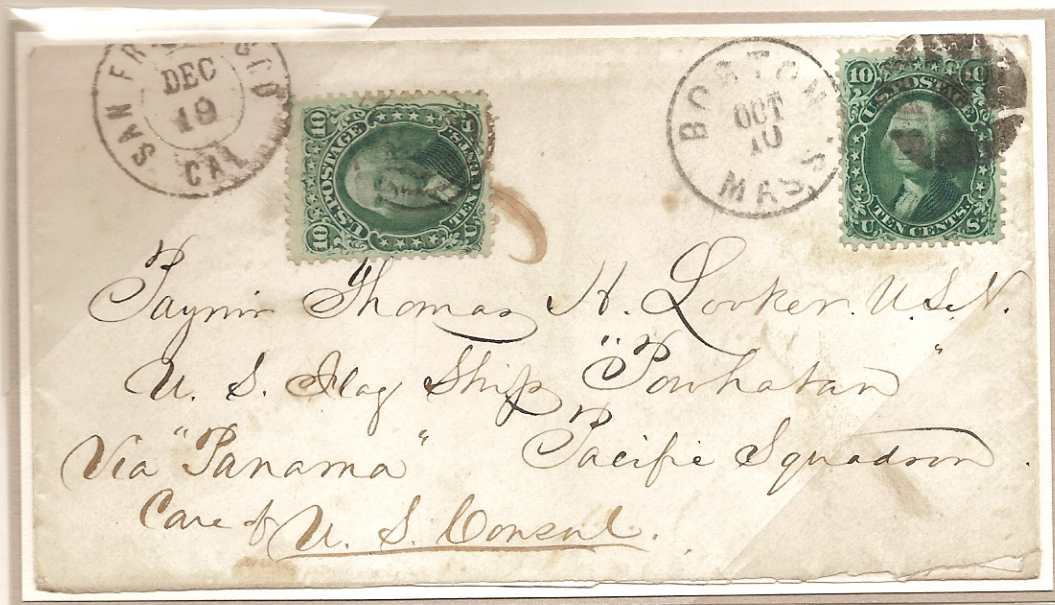 SAN FRANCISCO
DEC
19
CAL
10 U.S. POSTAGE 10
TEN CENTS
U S
BOSTON
OCT
10
MASS.
10 10
U.S. POSTAGE
TEN CENTS.
U S
Paymr Thomas H. Looker. U.S.N.
U. S. Flag Ship "Powhatan"
Via "Panama" Pacific Squadron.
Care of U. S. Consul.